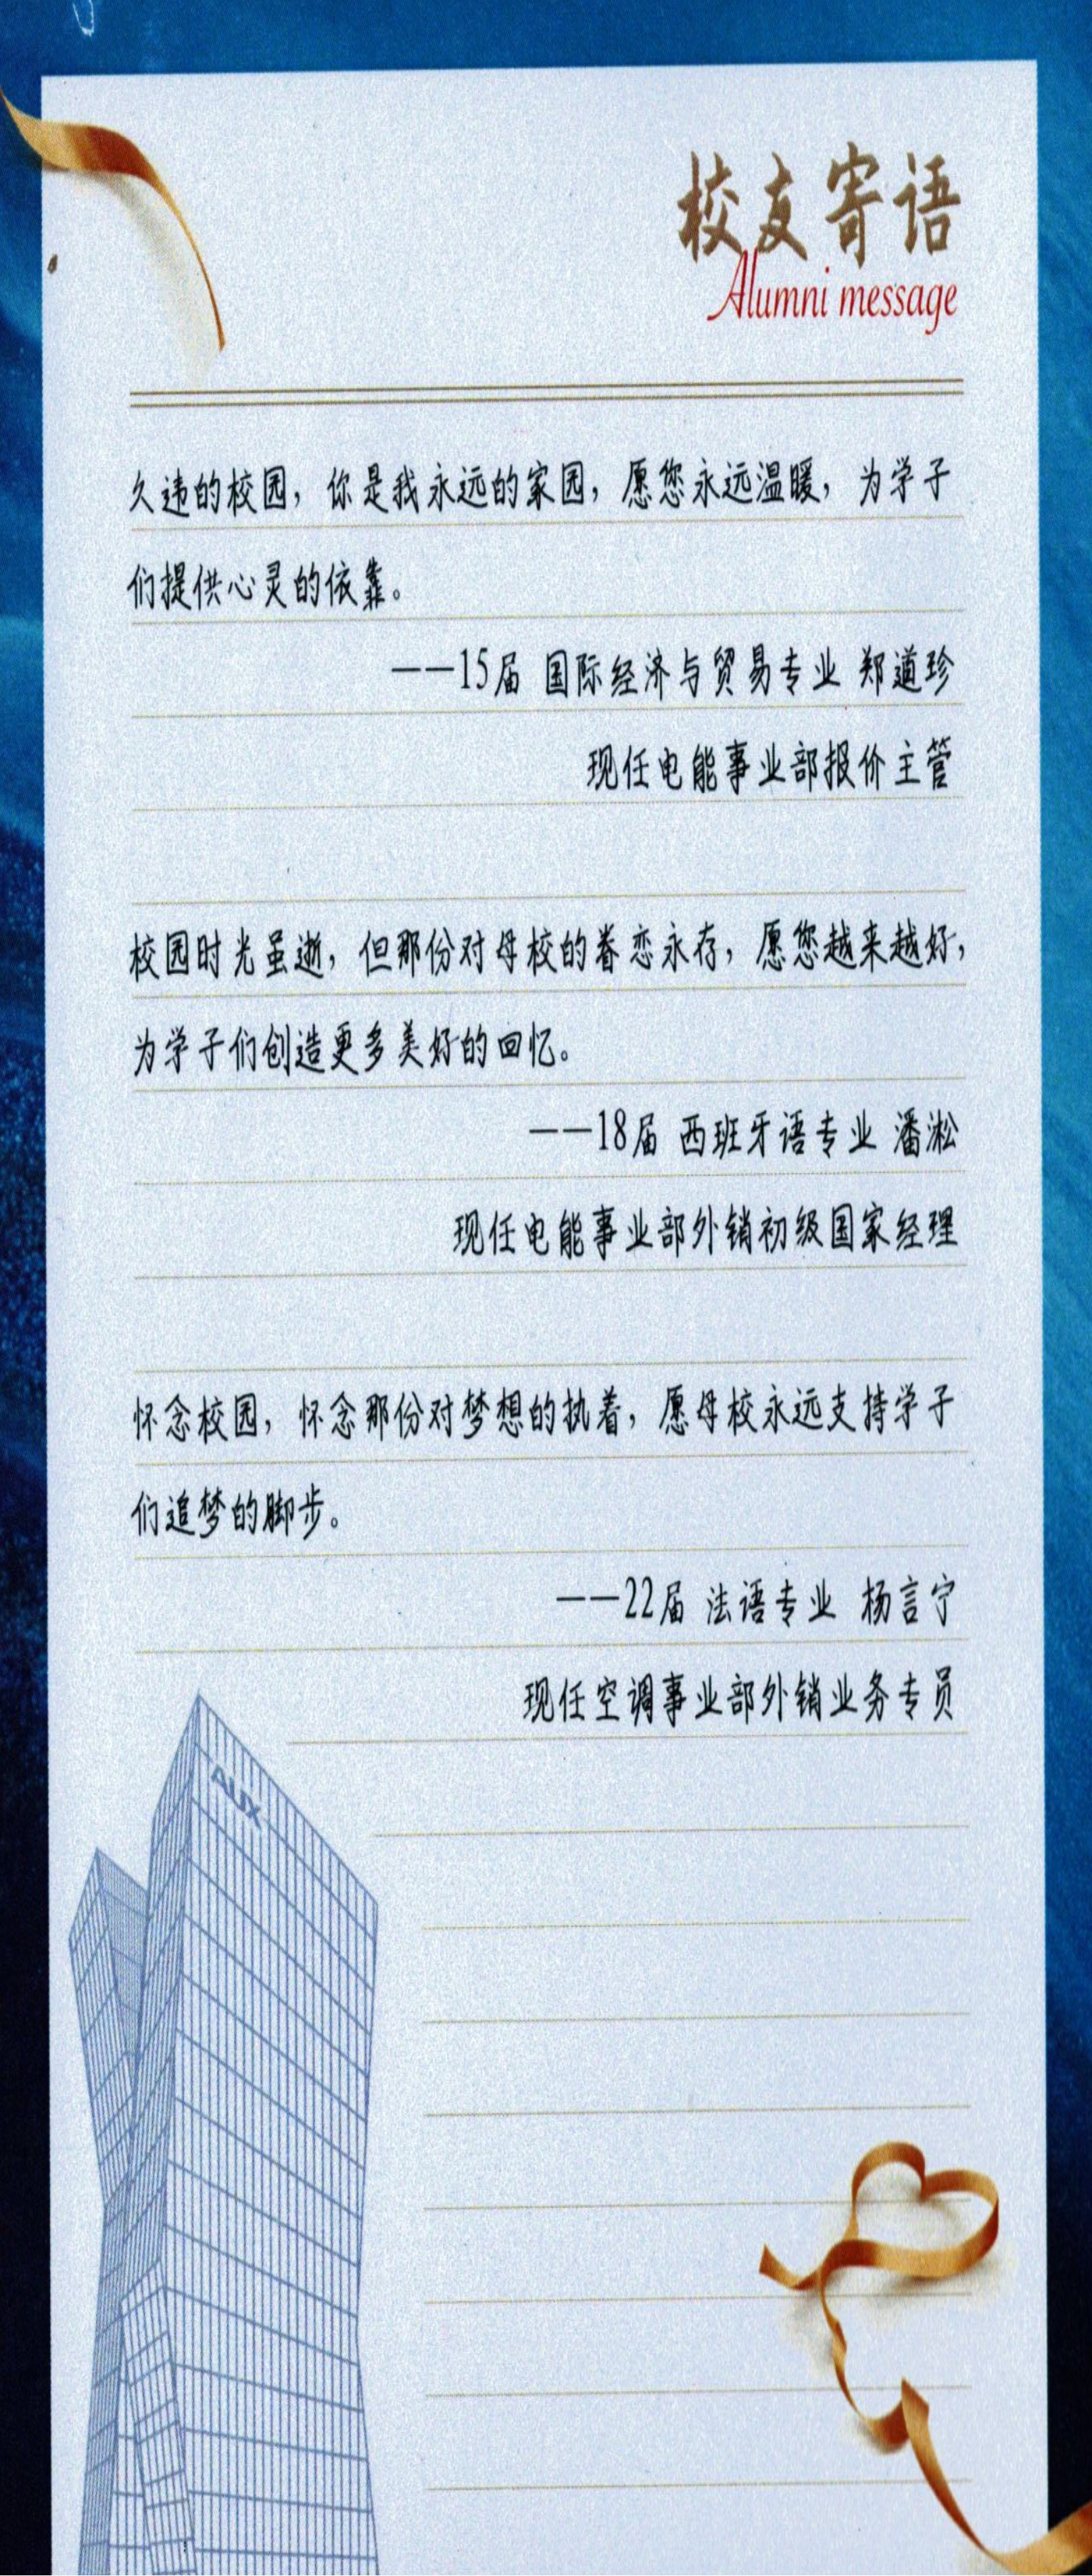 校友寄语
Alumni message
久违的校园，你是我永远的家园，愿您永远温暖，为学子
们提供心灵的依靠。
——15届 国际经济与贸易专业 郑道珍
现任电能事业部报价主管
校园时光虽逝，但那份对母校的眷恋永存，愿您越来越好，
为学子们创造更多美好的回忆。
——18届 西班牙语专业 潘淞
现任电能事业部外销初级国家经理
怀念校园，怀念那份对梦想的执着，愿母校永远支持学子
们追梦的脚步。
——22届 法语专业 杨言宁
现任空调事业部外销业务专员
AUX